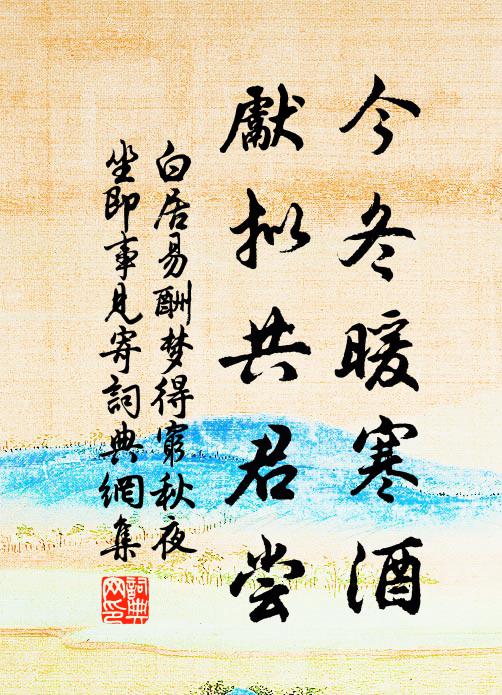 今冬暖寒酒
献拟共君尝
白居易酬梦得穷秋夜
坐即事見寄詞典網集
詞典
网印